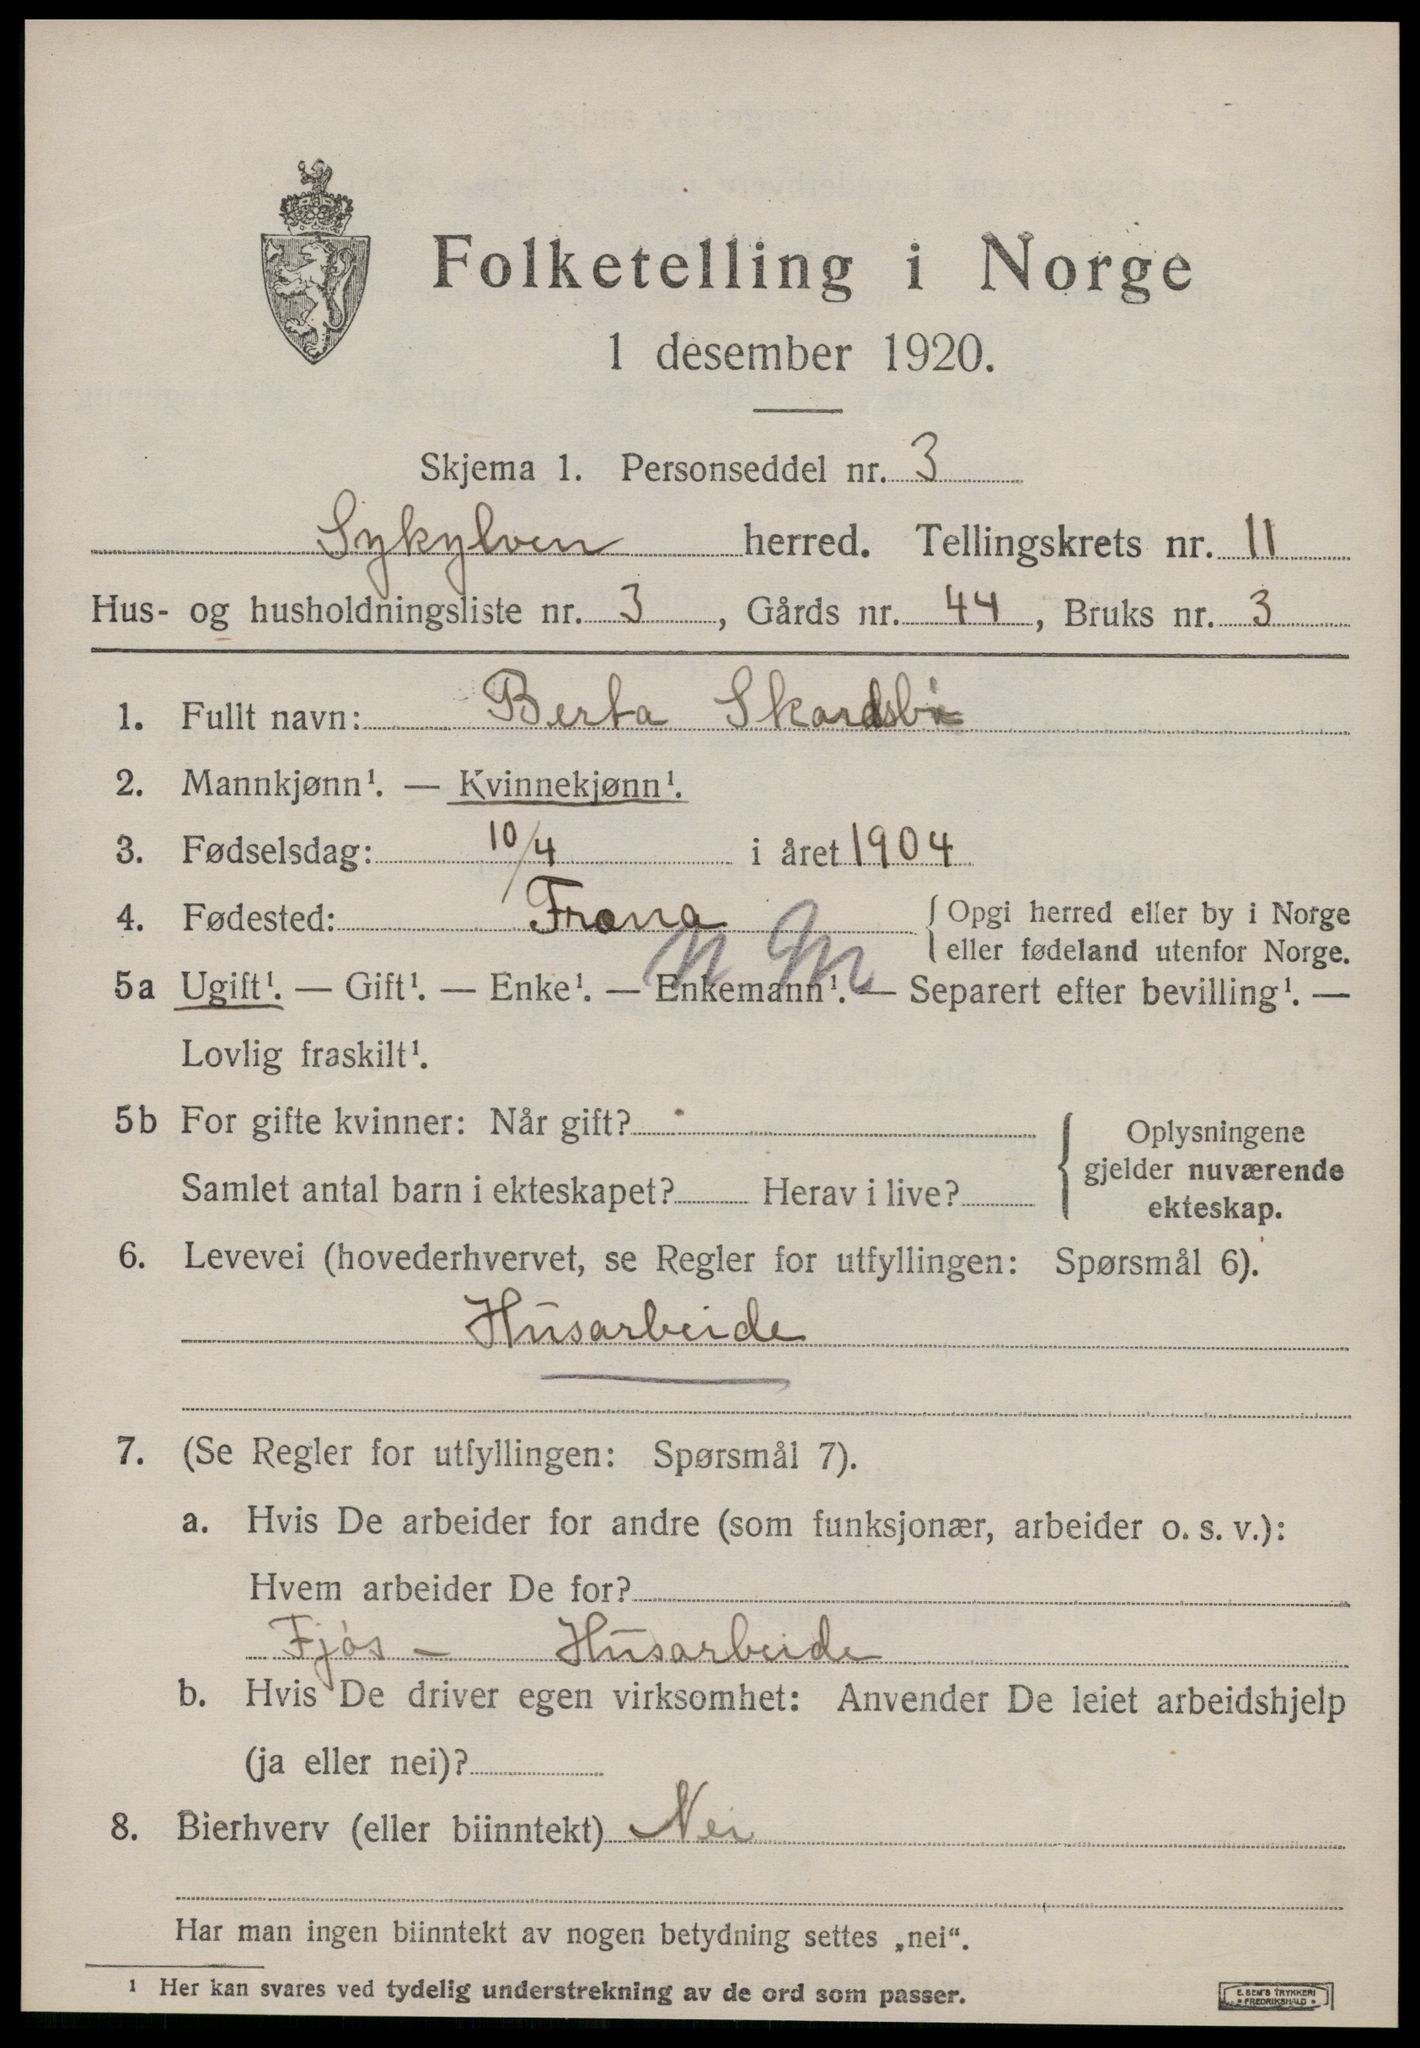 Folketelling i Norge
1 desember 1920.
Skjema 1. Personseddel nr. 3
Sykylven herred. Tellingskrets nr. 11
Hus- og husholdningsliste nr. 3, Gårds nr. 44, Bruks nr. 3
1. Fullt navn: Berta Skardsbø
2. Mannkjønn¹. — Kvinnekjønn¹.
3. Fødselsdag: 10/4 i året 1904
4. Fødested: Fræna {Opgi herred eller by i Norge
eller fødeland utenfor Norge.
5a Ugift¹. — Gift¹. — Enke¹. — Enkemann¹. — Separert efter bevilling¹. —
Lovlig fraskilt¹.
5b For gifte kvinner: Når gift?
Samlet antal barn i ekteskapet? Herav i live?
{Oplysningene
gjelder nuværende
ekteskap.
6. Levevei (hovederhvervet, se Regler for utfyllingen: Spørsmål 6).
Husarbeide
7. (Se Regler for utfyllingen: Spørsmål 7).
a. Hvis De arbeider for andre (som funksjonær, arbeider o. s. v.):
Hvem arbeider De for?
Fjøs - Husarbeide
b. Hvis De driver egen virksomhet: Anvender De leiet arbeidshjelp
(ja eller nei)?
8. Bierhverv (eller biinntekt) Nei
Har man ingen biinntekt av nogen betydning settes „nei“.
¹ Her kan svares ved tydelig understrekning av de ord som passer.
E. SEM'S TRYKKERI
FREDRIKSHALD